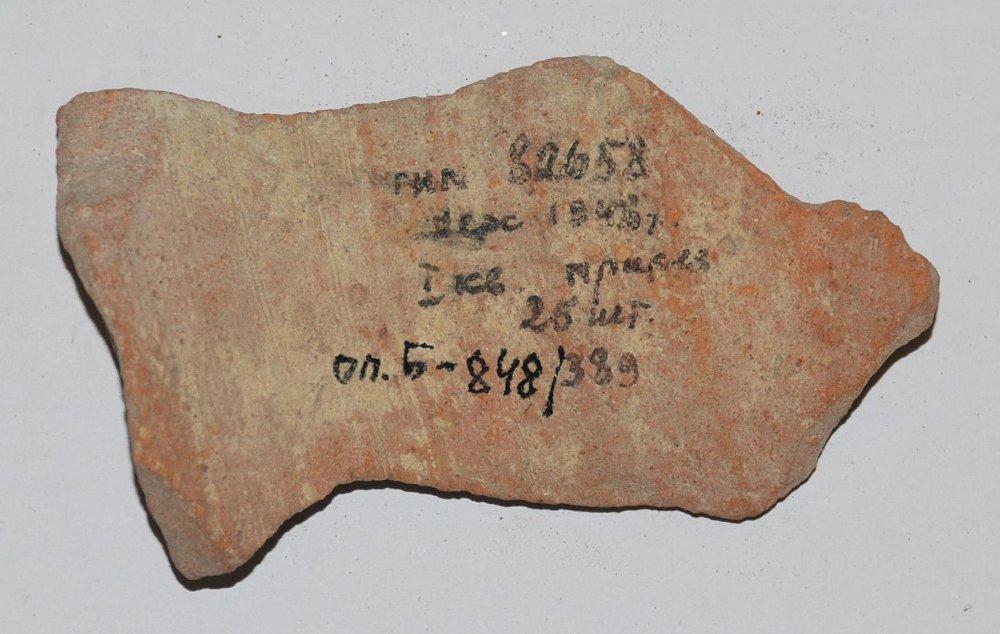 гим 82658
херс 1946г.
I кв. прирез
25 шт.
оп. Б-848/389